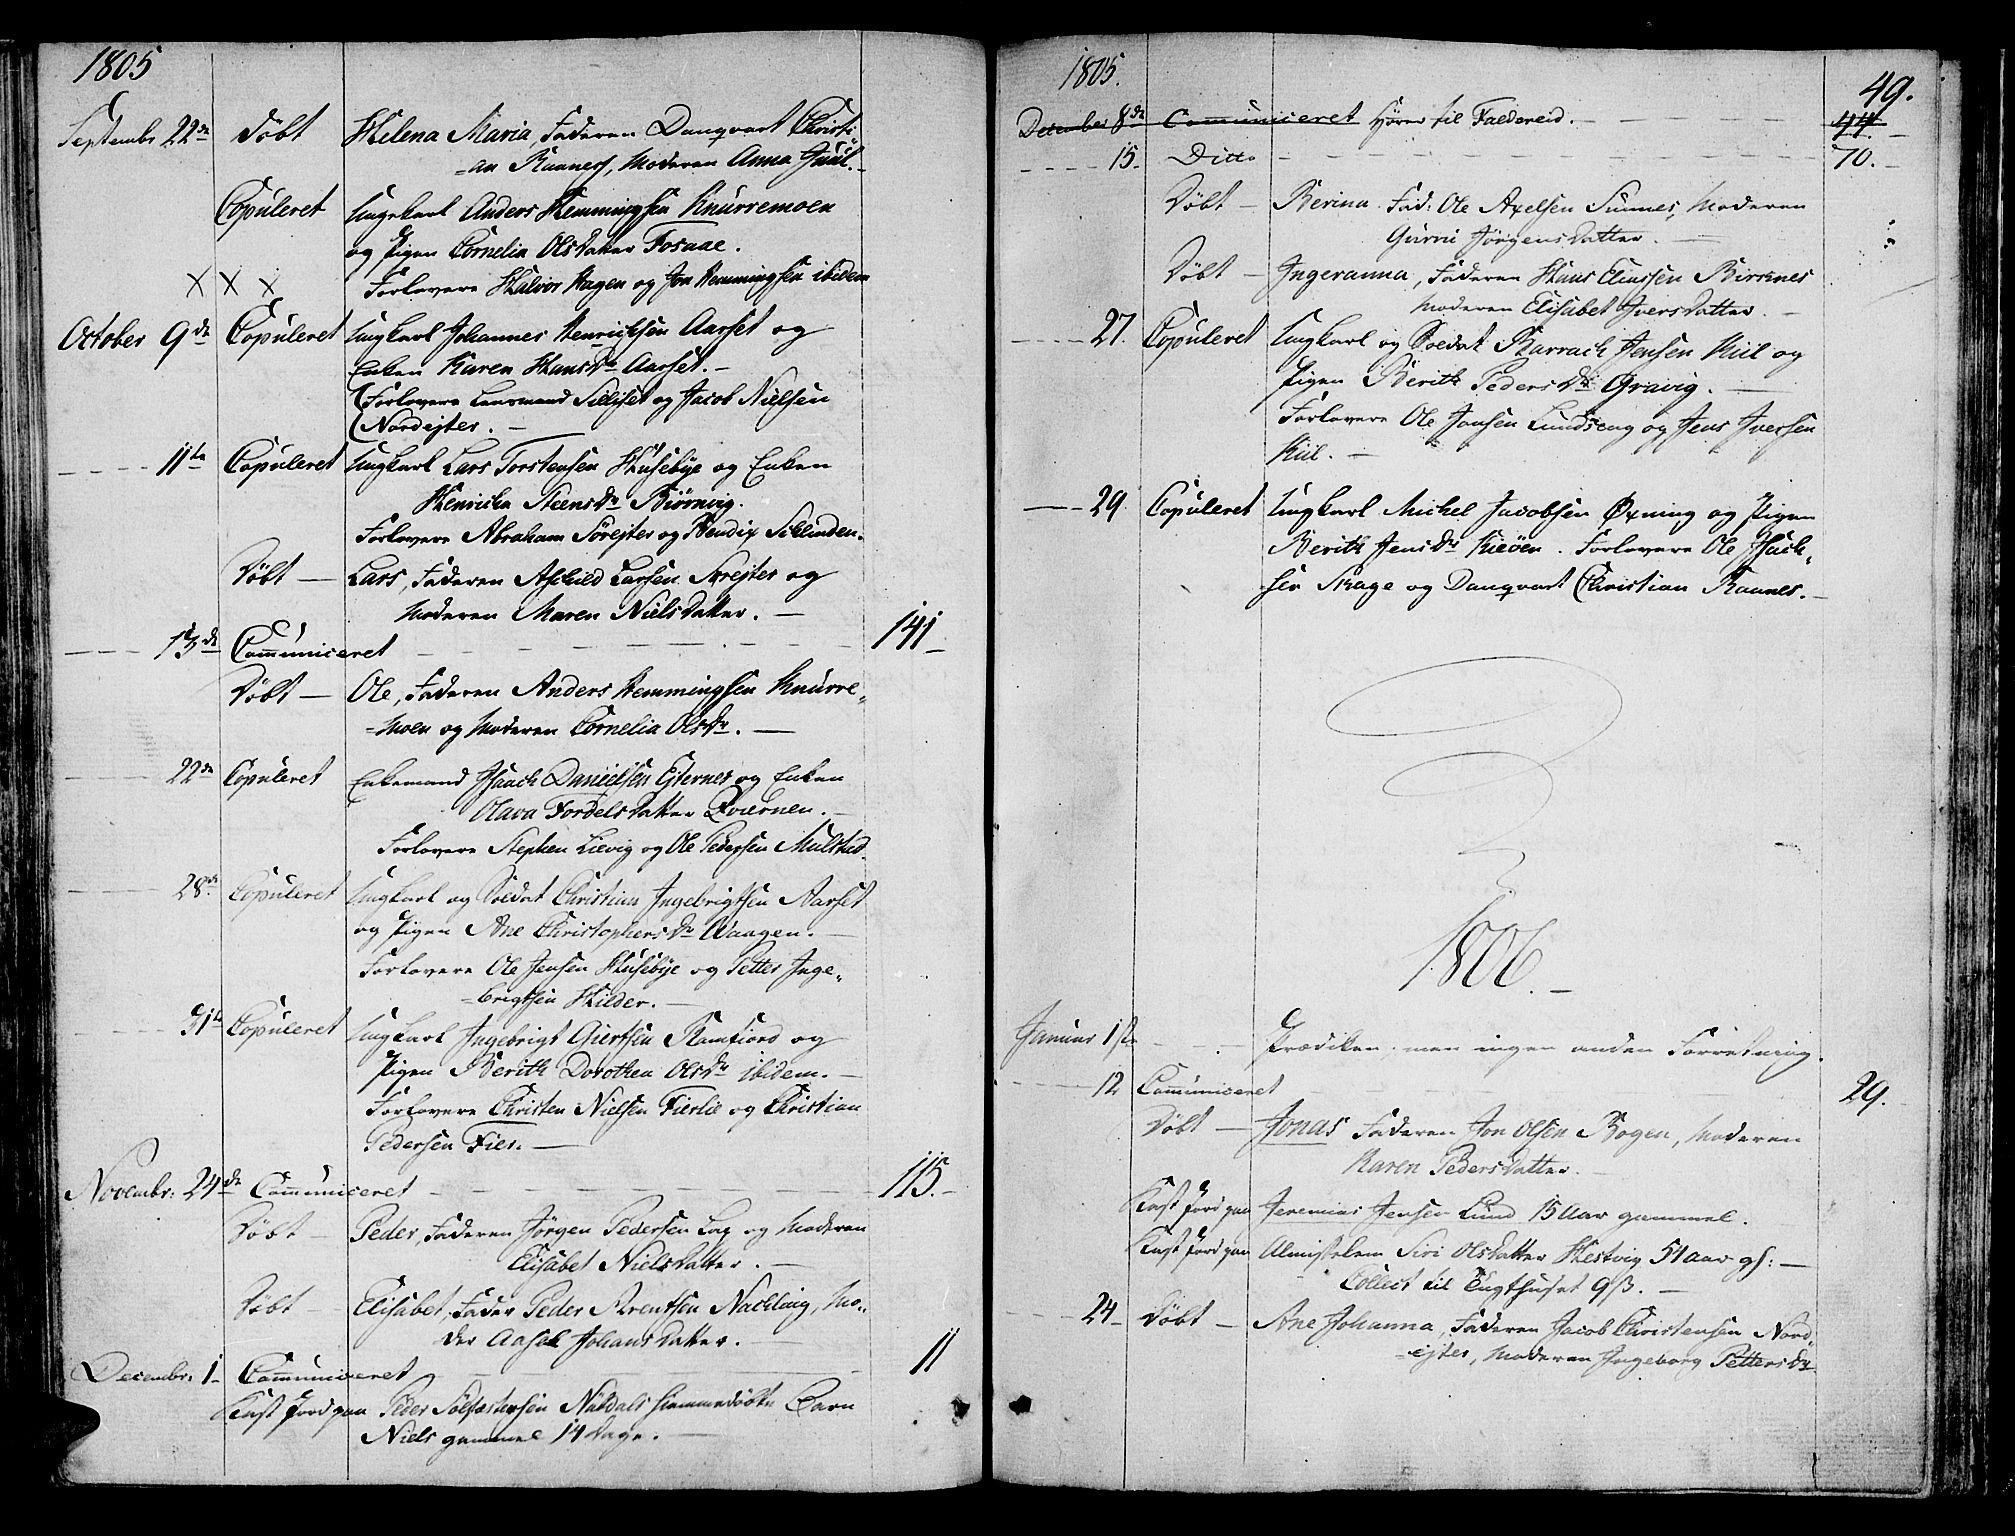 1805
Septembr 22de Døbt Helena Maria, Faderen Danqvart Christi
=an Raanes, Moderen Anna Juul.
Copuleret Ungekarl Anders Hemmingsen Knurremoen
og Pigen Cornelia Olsdatter Fosaae.
X X X Forlovere Halvor Hagen og Jon Hemmingsen ibidem
October 9de Copuleret Ungkarl Johannes Henrichsen Aarset og
Enken Karen Hansdr Aarset.-
(Forlovere Lensmand Selliset og Jacob Nielsen
(Nordejter. -
---- 11te Copuleret Ungkarl Lars Torstensen Husebye og Enken
Henricka Steensdr Biörnvig.
Forlovere Abraham Sörejter og Bendix Seklinden.
Døbt - Lars, Faderen Aschild Larsen Sørejter og
Moderen Maren Nielsdatter. -
---- 13de Communiceret - - - - - - 141 -
Døbt - Ole, Faderen Anders Hemmingsen Knurre,
=moen og Moderen Cornelia Olsdr. -
---- 22de Copuleret Enkemand Isaach Danielsen Ejternes og Enken
Olava Fordelsdatter Qviernen. -
Forlovere Stephen Lievig og Ole Pedersen Mulstad.
---- 28de Copuleret Ungkarl og Soldat Christian Ingebrigtsen Aarset
og Pigen Ane Christophersdr Waagen. -
Forlovere Ole Jensen Husebye og Petter Inge,
=brigtsen Hilder. -
---- 31te Copuleret Ungkarl Ingebrigt Giertsen Ramfiord og
Pigen Berith Dorothea Olsdr ibidem. -
Forlovere Christen Nielsen Fierlie og Christian
Pedersen Fier. -
Novembr: 24de Communiceret - - - - - - 115. -
Døbt - Peder, Faderen Jørgen Pedersen Lap og Moderen
Elisabet Nielsdatter. -
Døbt - Elisabet, Fader Peder Arentsen Nachling, Mo-
der Aasel Johansdatter. -
Decembr: 1- Communiceret - - - - - - 11
Kast Jord paa Peder Sølfæstersen Nardals hiemmedøbte Barn
Niels gammel 14 Dage. -
1805. 49.
December 8de Communiceret hører til Foldereid. - - - - 44. -
---- 15. Ditto - - - - - - 70. -
Døbt - Berina. Fad: Ole Axelsen Sunnes, Moderen
Gurui Jörgensdatter. -
Døbt - Ingeranna, Faderen Hans Eliassen Birkenes
Moderen Elisabet Iversdatter. -
---- 27. Copuleret Ungkarl og Soldat Barrach Jensen Kiil og
Pigen Berith Pedersdr Gravig. -
Forlovere Ole Jonsen Lundseng og Jens Iversen
Kiil. -
---- 29. Copuleret Ungkarl Michel Jacobsen Øxning og Pigen
Berith Jensdr Kieöen. Forlovere Ole Isach-
sen Skage og Danqvart Christian Raanes. -
1806. -
Januar 1ste - - Prædiken, men ingen anden Forretning.
---- 12 Communiceret - - - 29.
Døbt - Jonas Faderen Jon Olsen Bogen, Moderen
Karen Pedersdatter. -
Kast Jord paa Jeremias Jensen Lund 15 Aar gammel.
Kast Jord paa Almisselem Siri Olsdatter Hestvig 54 aar gl: -
Collect til Tugthuset 9ß. -
-- 24 - Døbt - Ane Johanna, Faderen Jacob Christensen Nord,
=ejter, Moderen Ingeborg Pettersdr